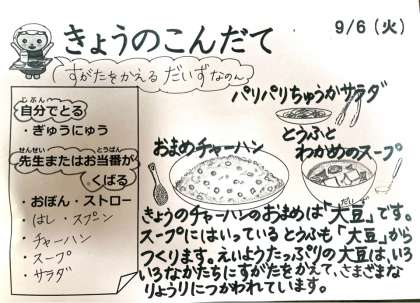 きょうのこんだて
9/6(火)
すがたをかえるだいずなのん♪
じぶん
自分でとる
・ぎゅうにゅう
せんせい とうばん
先生またはお当番が
くばる
・おぼん・ストロー
・はし・スプーン
・チャーハン
・スープ
・サラダ
パリパリちゅうかサラダ
おまめチャーハン
とうふと
わかめのスープ
だいず
きょうのチャーハンのおまめは「大豆」です。
スープにはいっているとうふも「大豆」から
つくります。えいようたっぷりの大豆は、いろ
いろなかたちにすがたをかえて、さまざまな
りょうりにつかわれています。